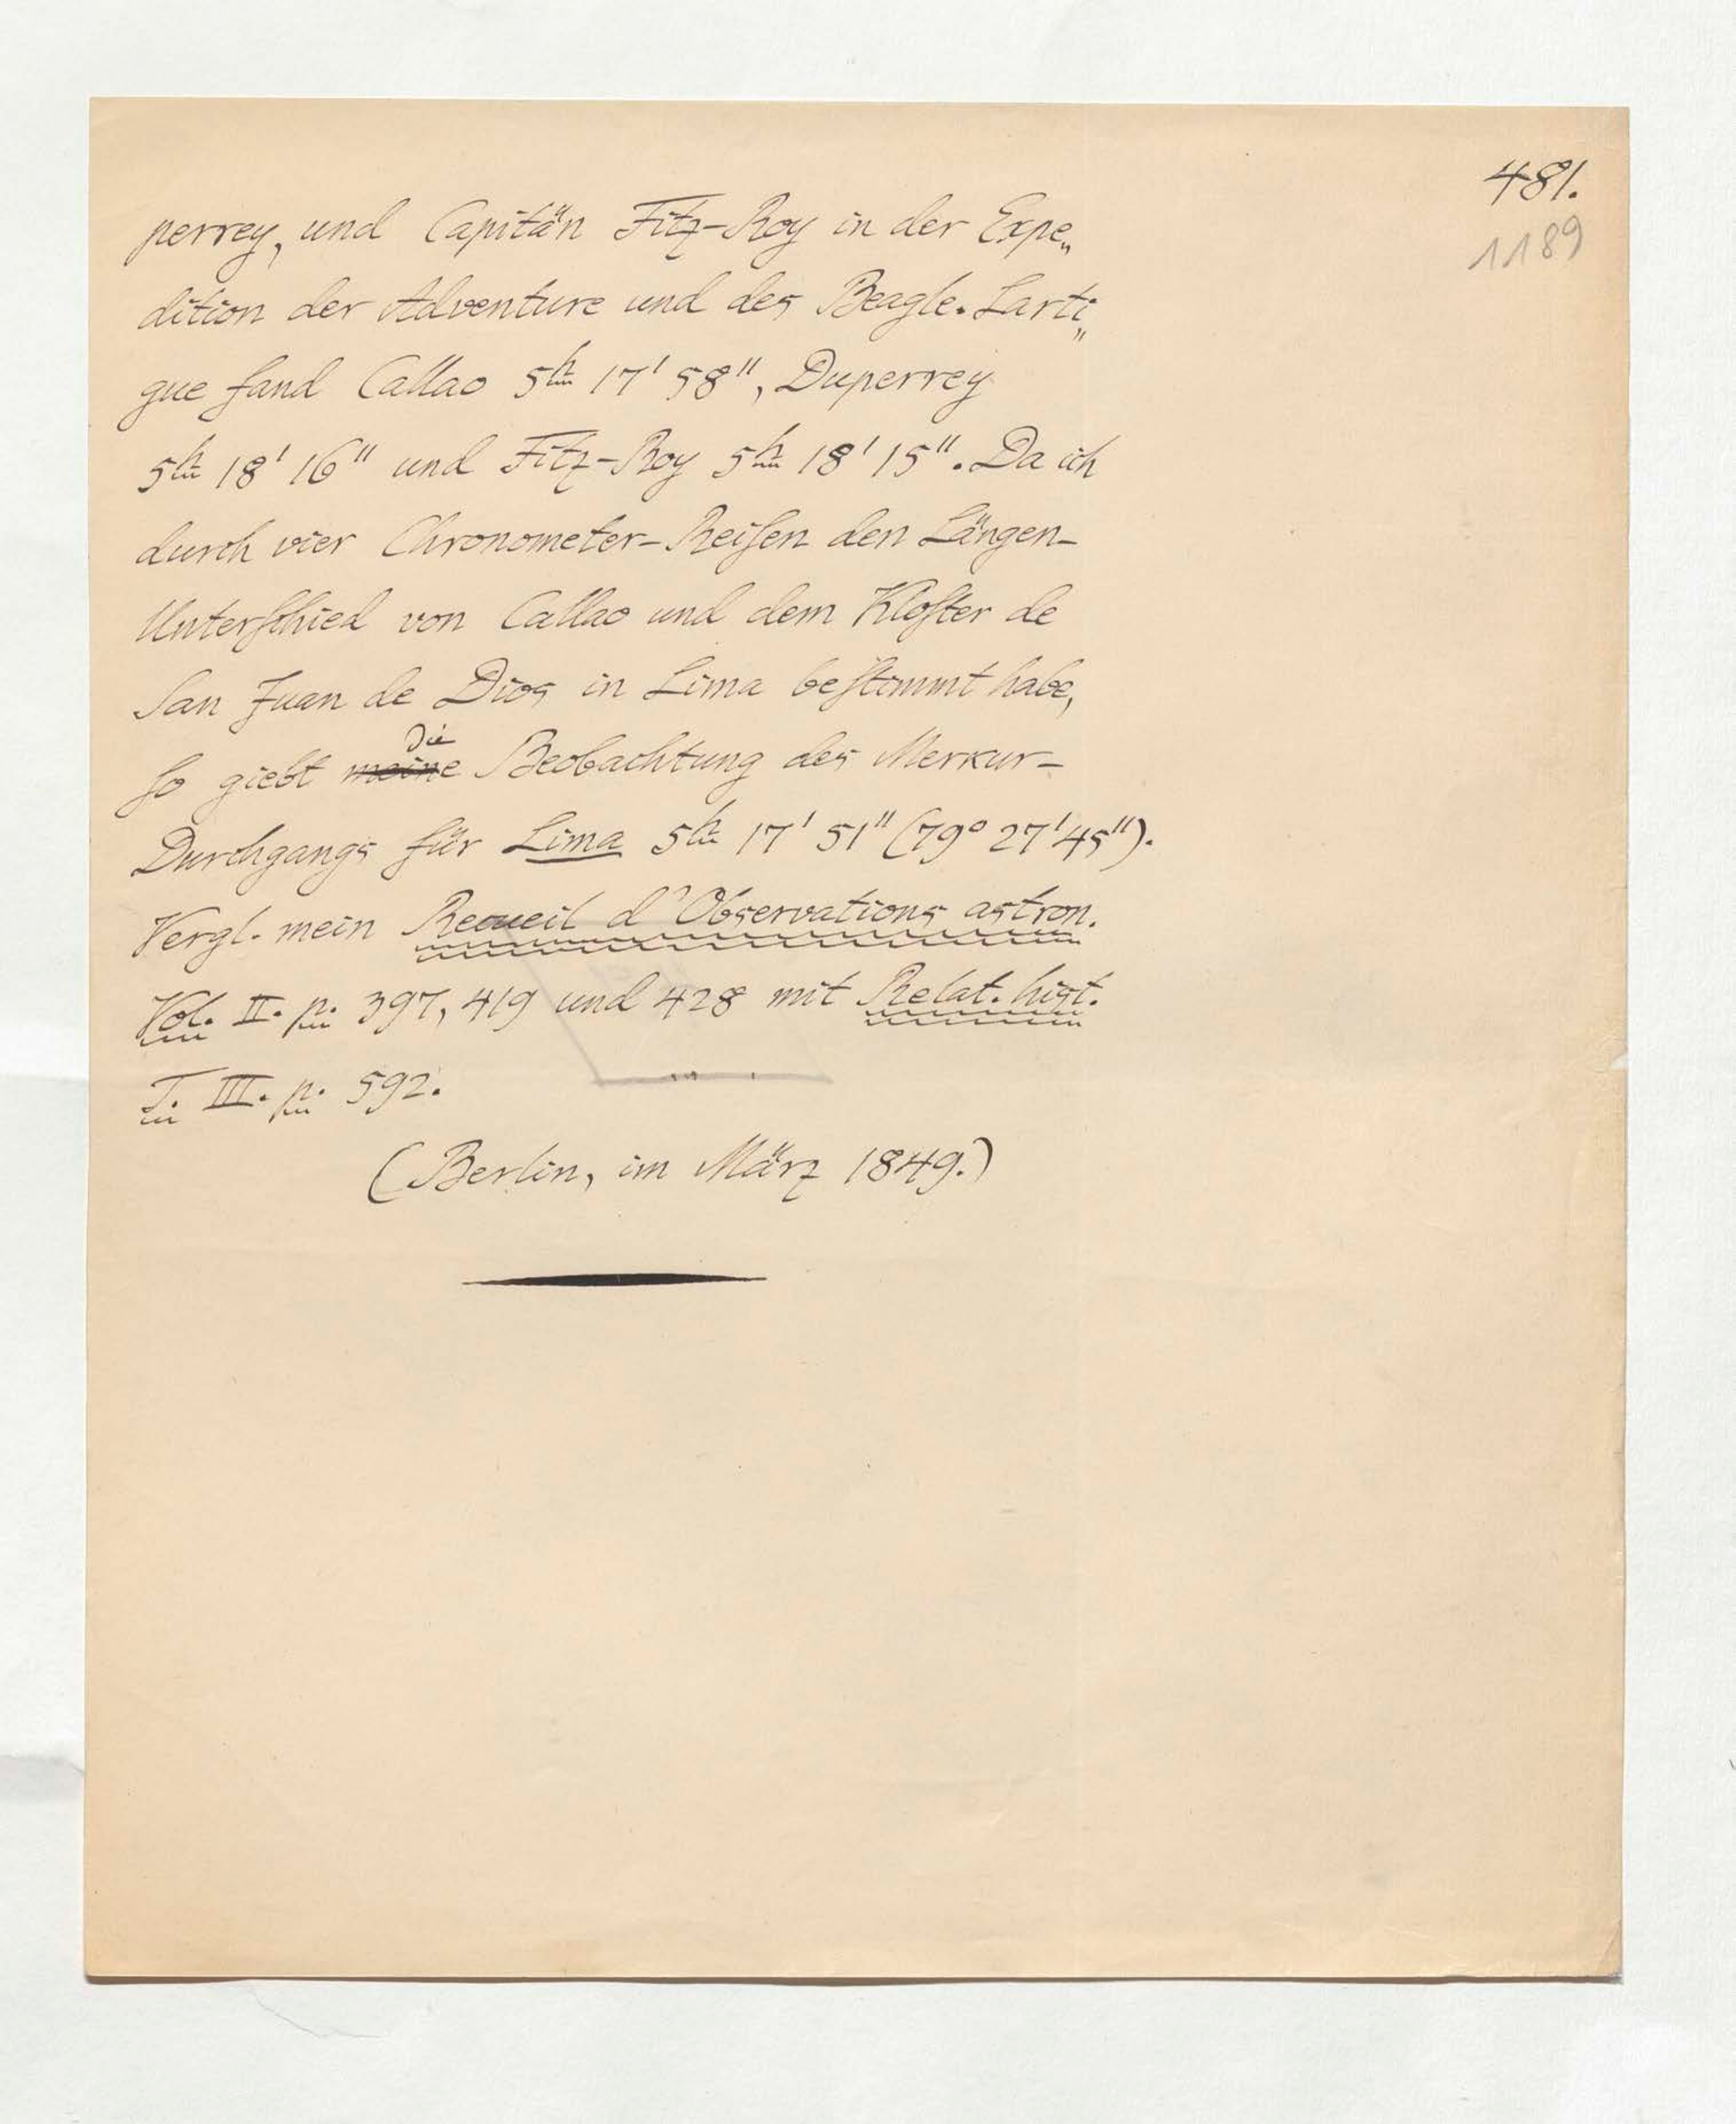 481.
1189
perrey, und Capitän Fitz-Roy in der Expe„
dition der Adventure und des Beagle. Larti„
gue fand Callao 5h 17' 58", Duperrey
5h 18' 16" und Fitz-Roy 5h 18' 15". Da ich
durch vier Chronometer-Reiſen den Längen-
Unterſchied von Callao und dem Kloſter de
San Juan de Dios in Lima beſtimmt habe,
die
ſo giebt meine Beobachtung des Merkur-
Durchgangs für Lima 5h 17' 51" (79° 27' 45").
Vergl. mein Recueil d'Observations astron.
Vol. II. p. 397, 419 und 428 mit Relat. hist.
T. III. p. 592.
(Berlin, im März 1849.)